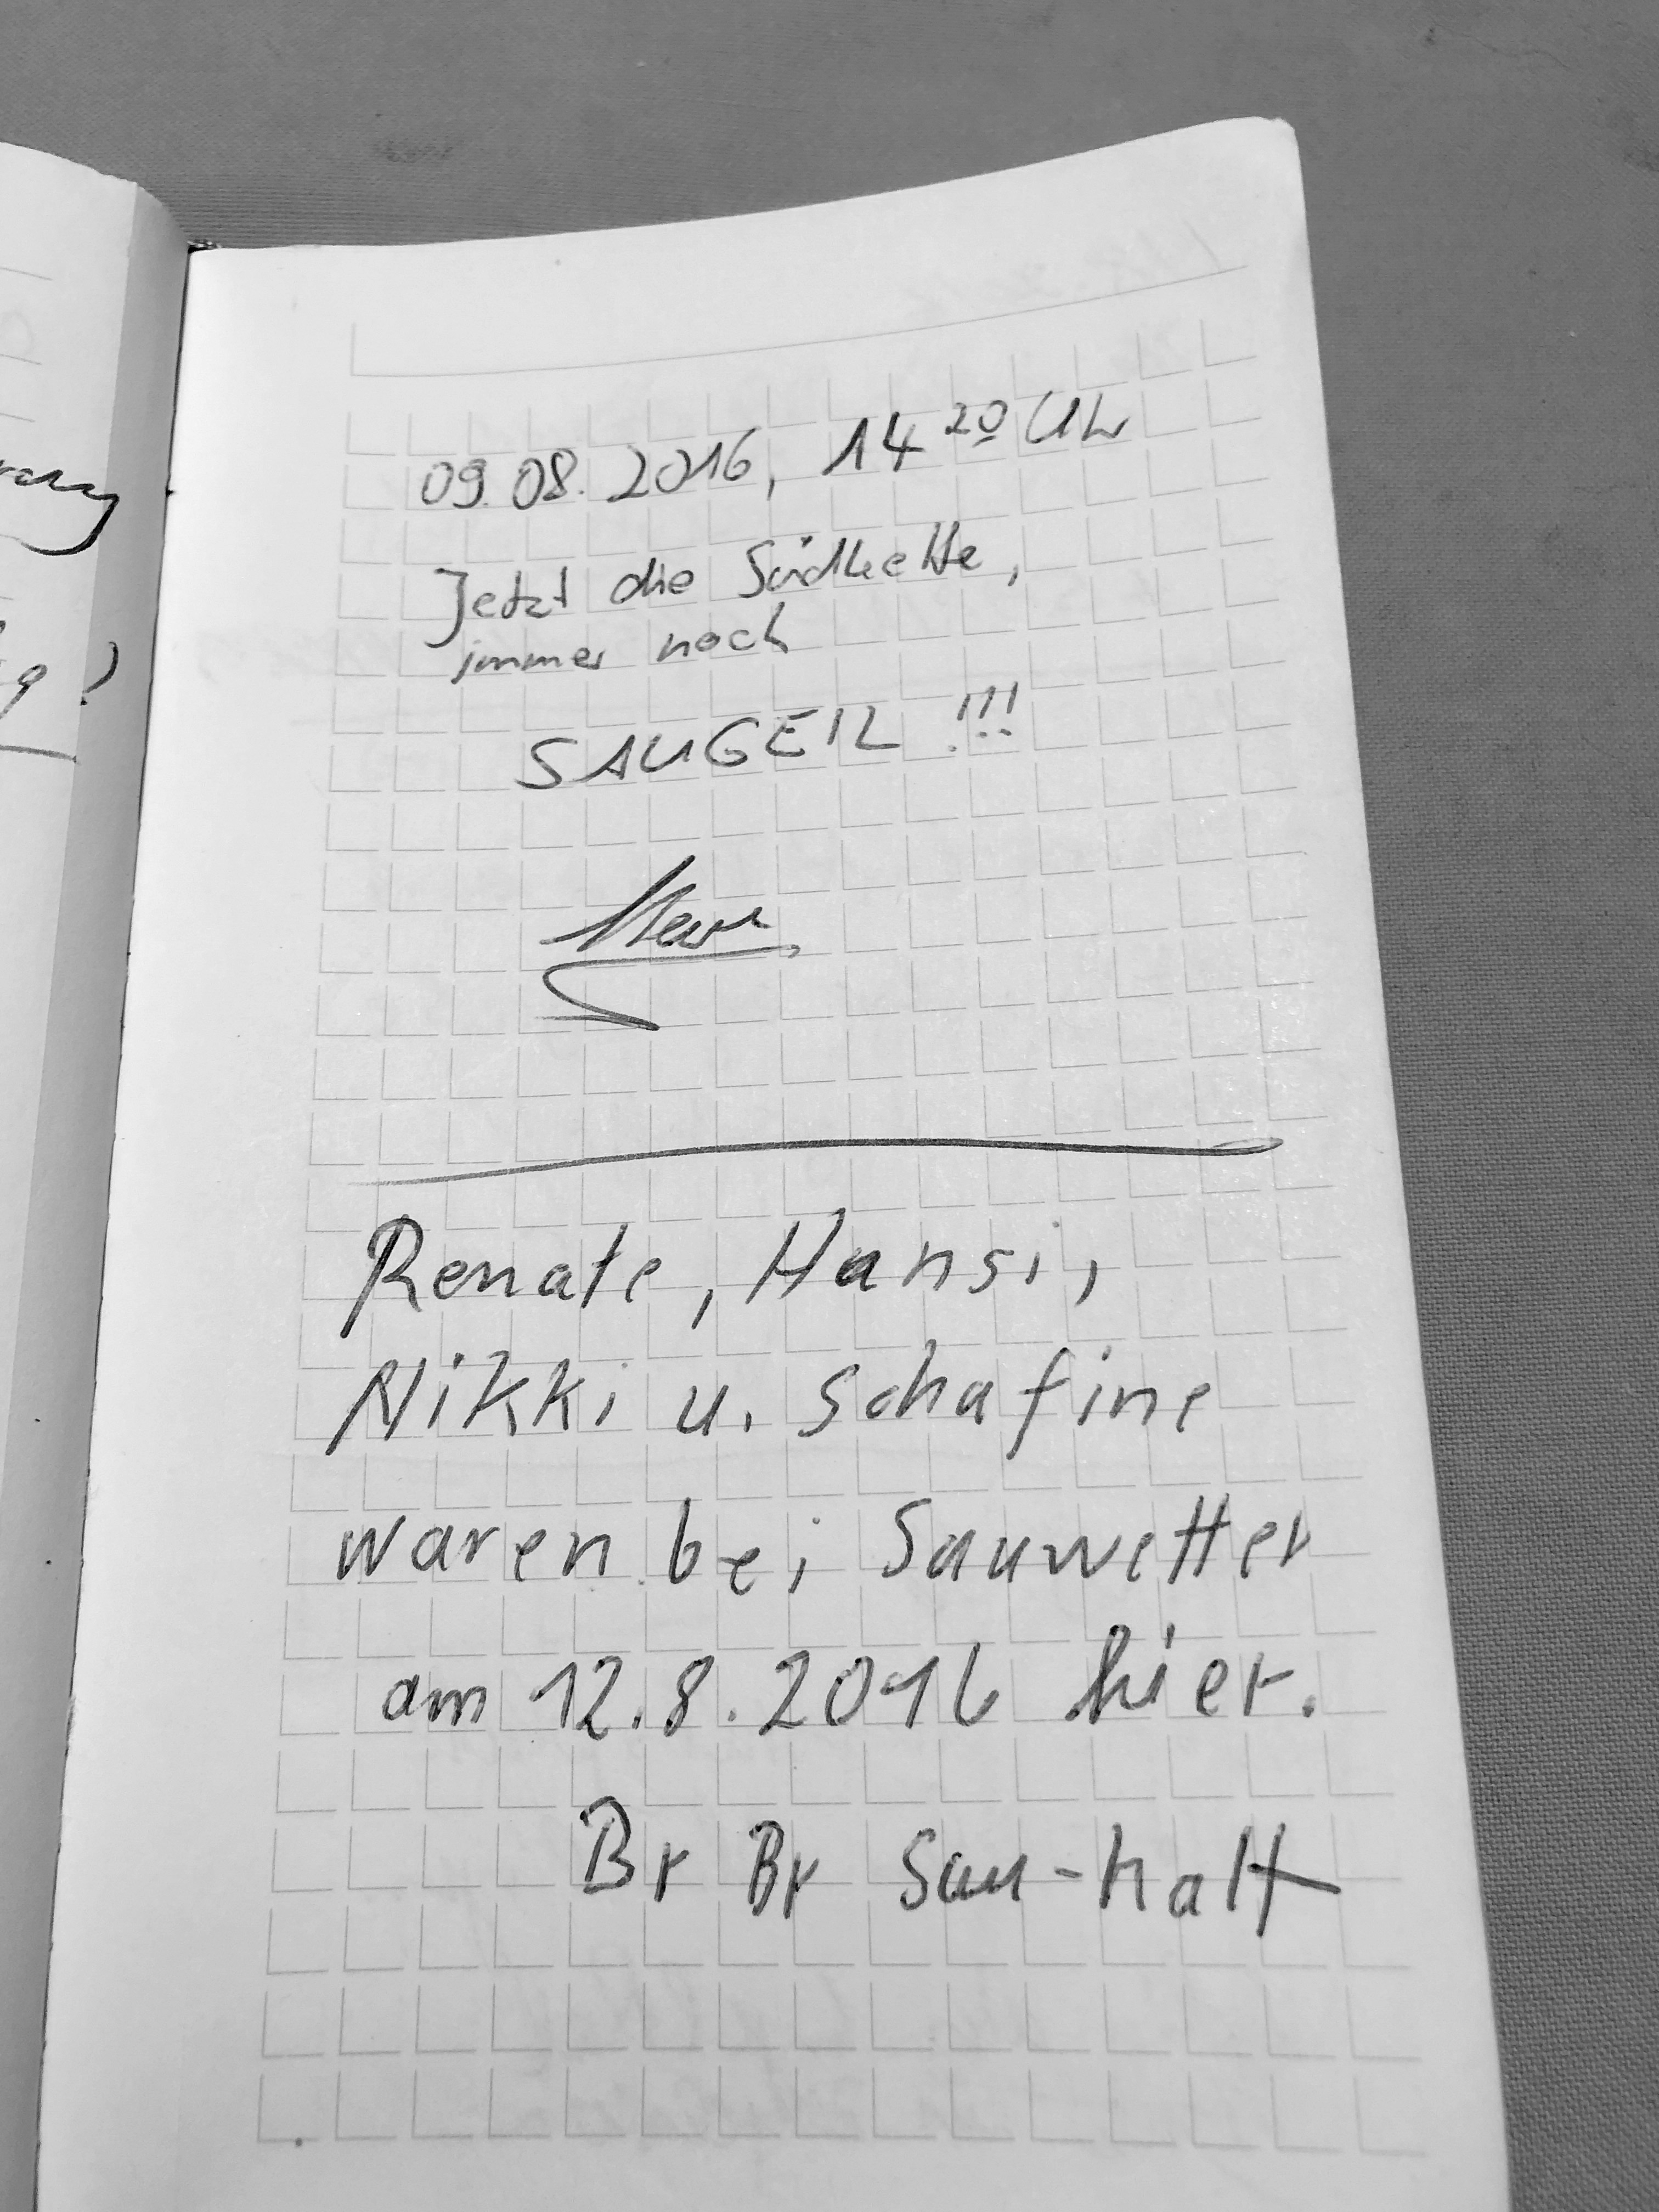 09.08.2016, 14 20 Uhr
Jetzt die Südkette,
immer noch
SAUGEIL !!!
Renate, Hansi,
Nikki u. Schafine
waren bei Sauwetter
am 12.8.2016 hier.
Br Br Sau-kalt